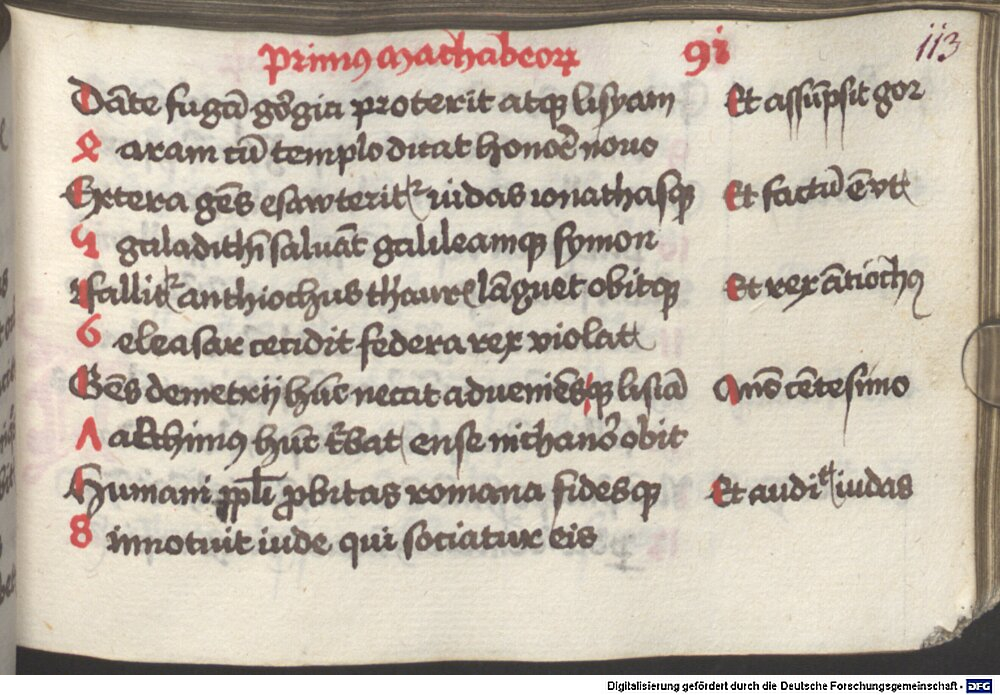 Primꝰ Machabeoꝝ 9i 113
Dāte fugā gorgia proterit atqꝫ lisyam Et assūpsit gor
4 aram cū templo ditat honore nouo
Extera gēs esaw terit iudas ionathasqꝫ Et factū ē vt
5 galadithī saluāt galileamqꝫ symon
Fallit anthiochus thaur lāguet obitqꝫ Et rex ātiochꝰ
6 eleasar cecidit federa rex violat
Gēs demetrij hūc necat adueniēsqꝫ lisiā Ano cētesimo
Λ alchimꝰ hūc turbat ense nichanor obit
Humani ppli ꝓbitas romana fidesqꝫ Et audit iudas
8 innotuit iude qui sociatur eis
Digitalisierung gefördert durch die Deutsche Forschungsgemeinschaft - DFG